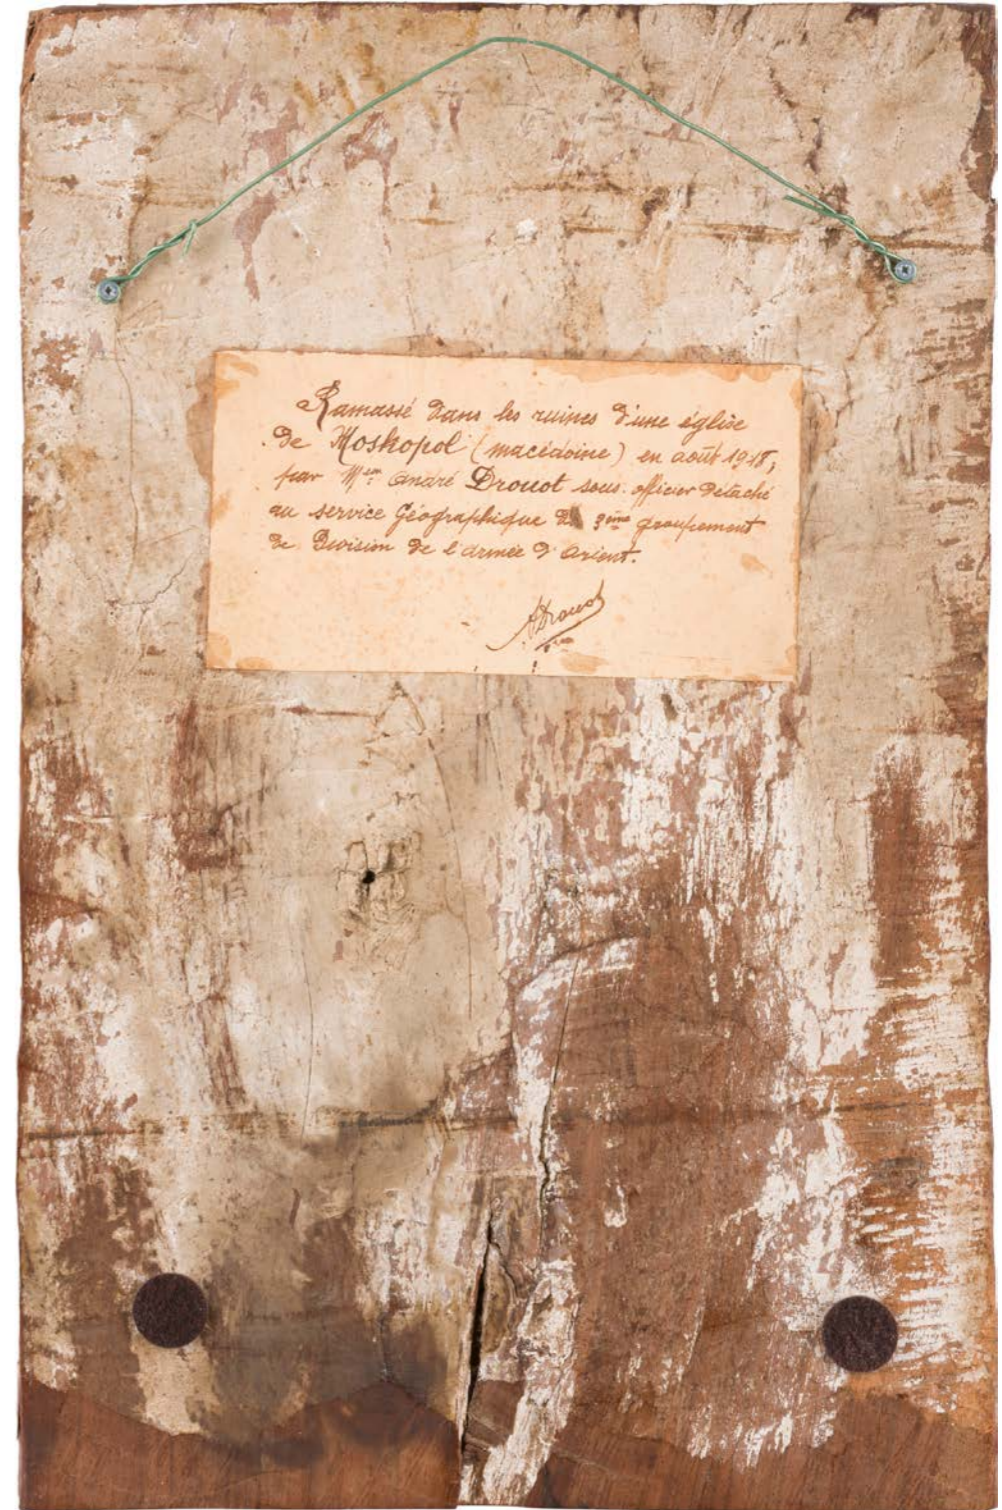 Ramassé dans les ruines d'une église
de Moskopol (macédoine) en août 1918,
par André Drouot sous-officier détaché
au service Géographique 3ème groupement
de Division de l'armée d'Orient.
ADrouot